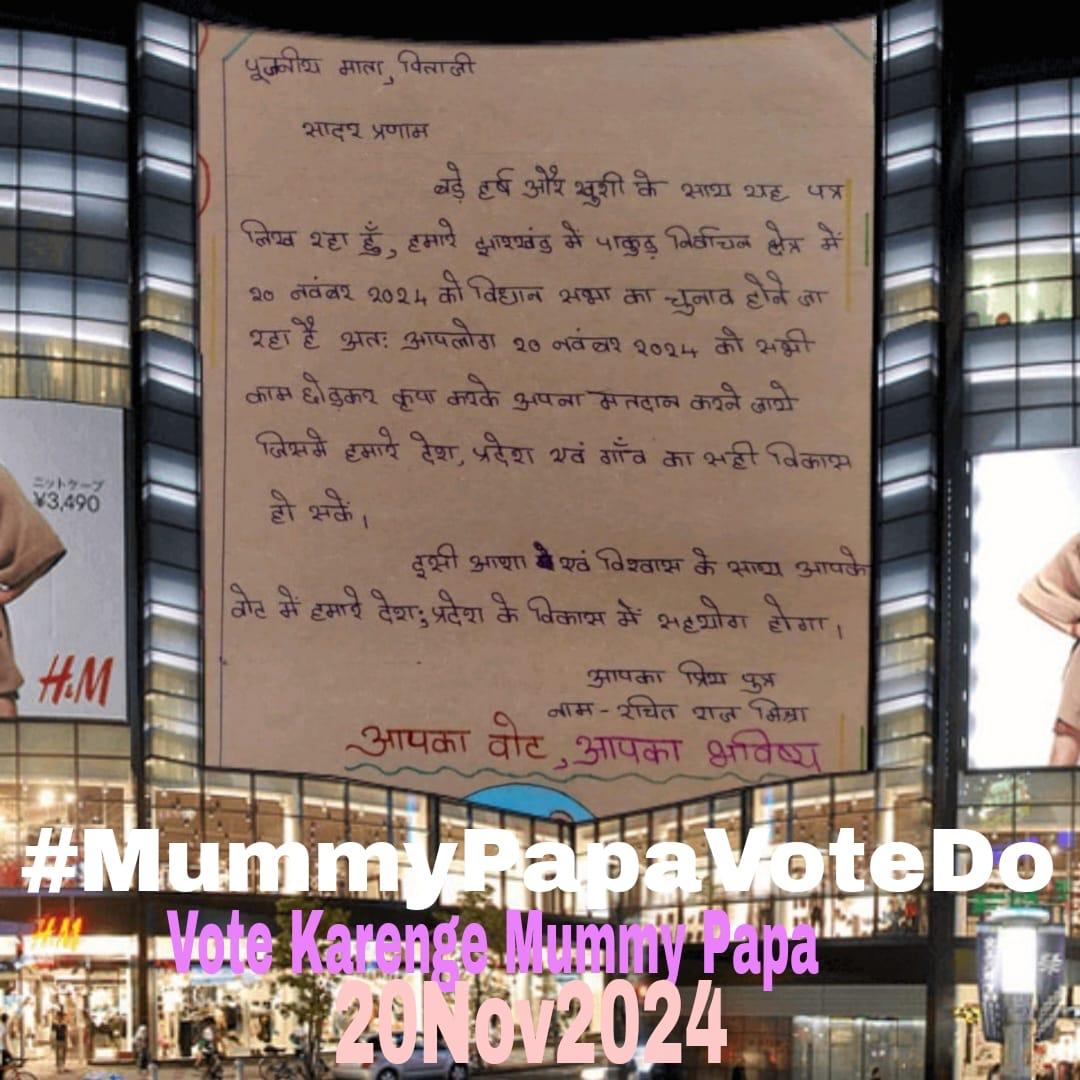 पूजनीय माता, पिताजी
सादर प्रणाम
बड़े हर्ष और खुशी के साथ यह पत्र
लिख रहा हूँ, हमारे झारखंड में पाकुड़ निर्वाचन क्षेत्र में
२० नवंबर २०२४ को विधान सभा का चुनाव होने जा
रहा है अतः आपलोग २० नवंबर २०२४ को सभी
काम छोड़कर कृपा करके अपना मतदान करने जाये
जिसमे हमारे देश, प्रदेश एवं गाँव का सही विकास
हो सकें।
इसी आशा एवं विश्वास के साथ आपके
वोट में हमारे देश, प्रदेश के विकास में सहयोग होगा।
आपका प्रिय पुत्र
नाम - रचित राज मिश्रा
आपका वोट, आपका भविष्य
ニットケープ
¥3,490
H&M
#MummyPapaVoteDo
H&M
Vote Karenge Mummy Papa
20Nov2024